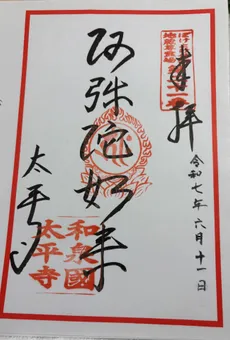 奉拝
令和七年六月十一日
阿弥陀如来
太平寺
和泉國
太平寺